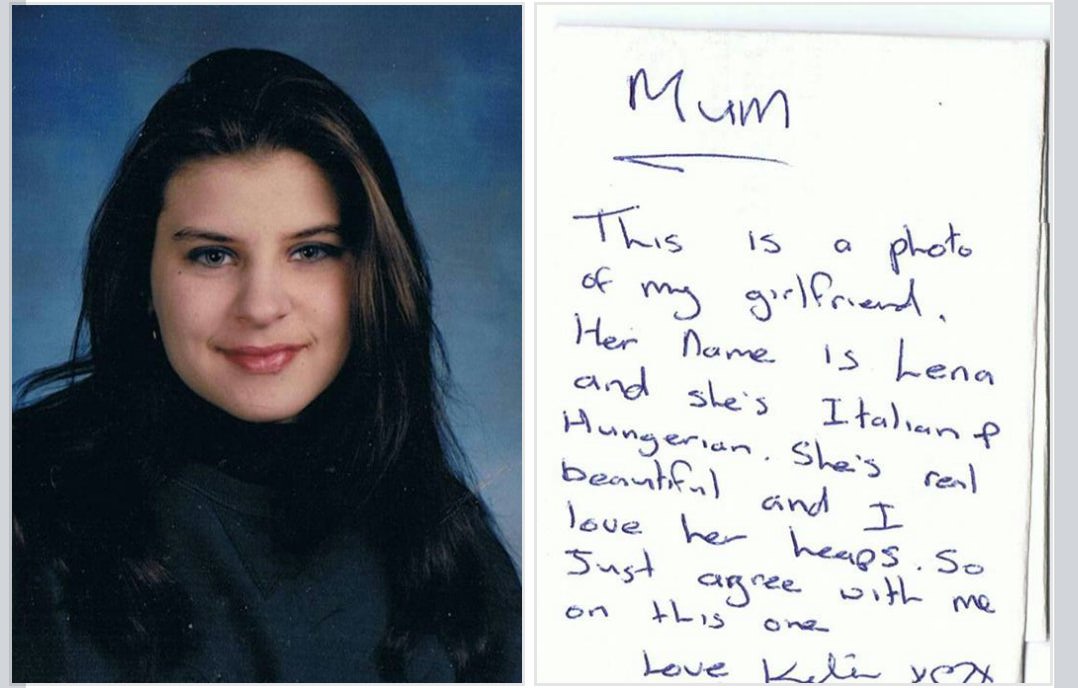 Mum
This is a photo
of my girlfriend.
Her Name is Lena
and she's Italian &
Hungerian. She's real
beautiful and I
love her heaps. So
Just agree with me
on this one
Love